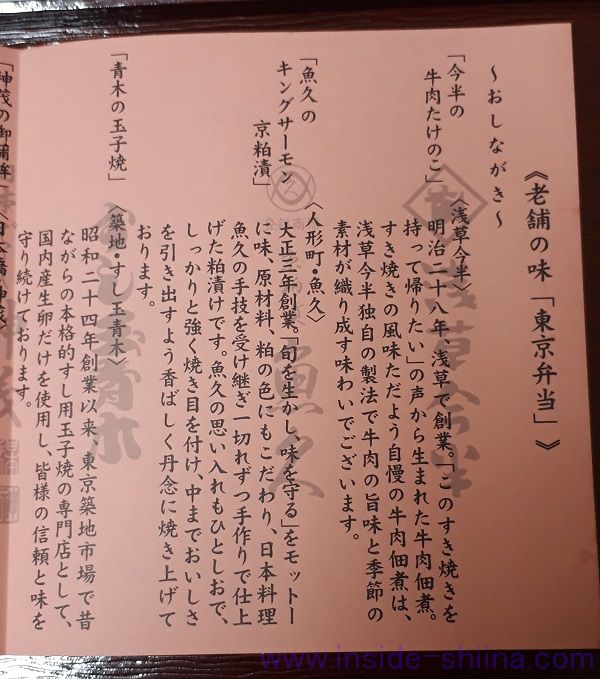 《老舗の味「東京弁当」》
～おしながき～
「今半の
牛肉たけのこ」
〈浅草今半〉
明治二十八年 浅草で創業。「このすき焼きを
持って帰りたい」の声から生まれた牛肉佃煮。
すき焼きの風味ただよう自慢の牛肉佃煮は、
浅草今半独自の製法で牛肉の旨味と季節の
素材が織り成す味わいでございます。
「魚久の
キングサーモン
京粕漬」
〈人形町・魚久〉
大正三年創業。「旬を生かし、味を守る」をモットー
に味、原材料、粕の色にもこだわり、日本料理
魚久の手技を受け継ぎ一切れずつ手作りで仕上
げた粕漬けです。魚久の思い入れもひとしおで、
しっかりと強く焼き目を付け、中までおいしさ
を引き出すよう香ばしく丹念に焼き上げて
おります。
「青木の玉子焼」
〈築地・すし玉青木〉
昭和二十四年創業以来、東京築地市場で昔
ながらの本格的すし用玉子焼の専門店として、
国内産生卵だけを使用し、皆様の信頼と味を
守り続けております。
「神茂の御蒲鉾」
〈日本橋・神茂〉
浅草今半
魚久
すし玉青木
www.inside-shiina.com